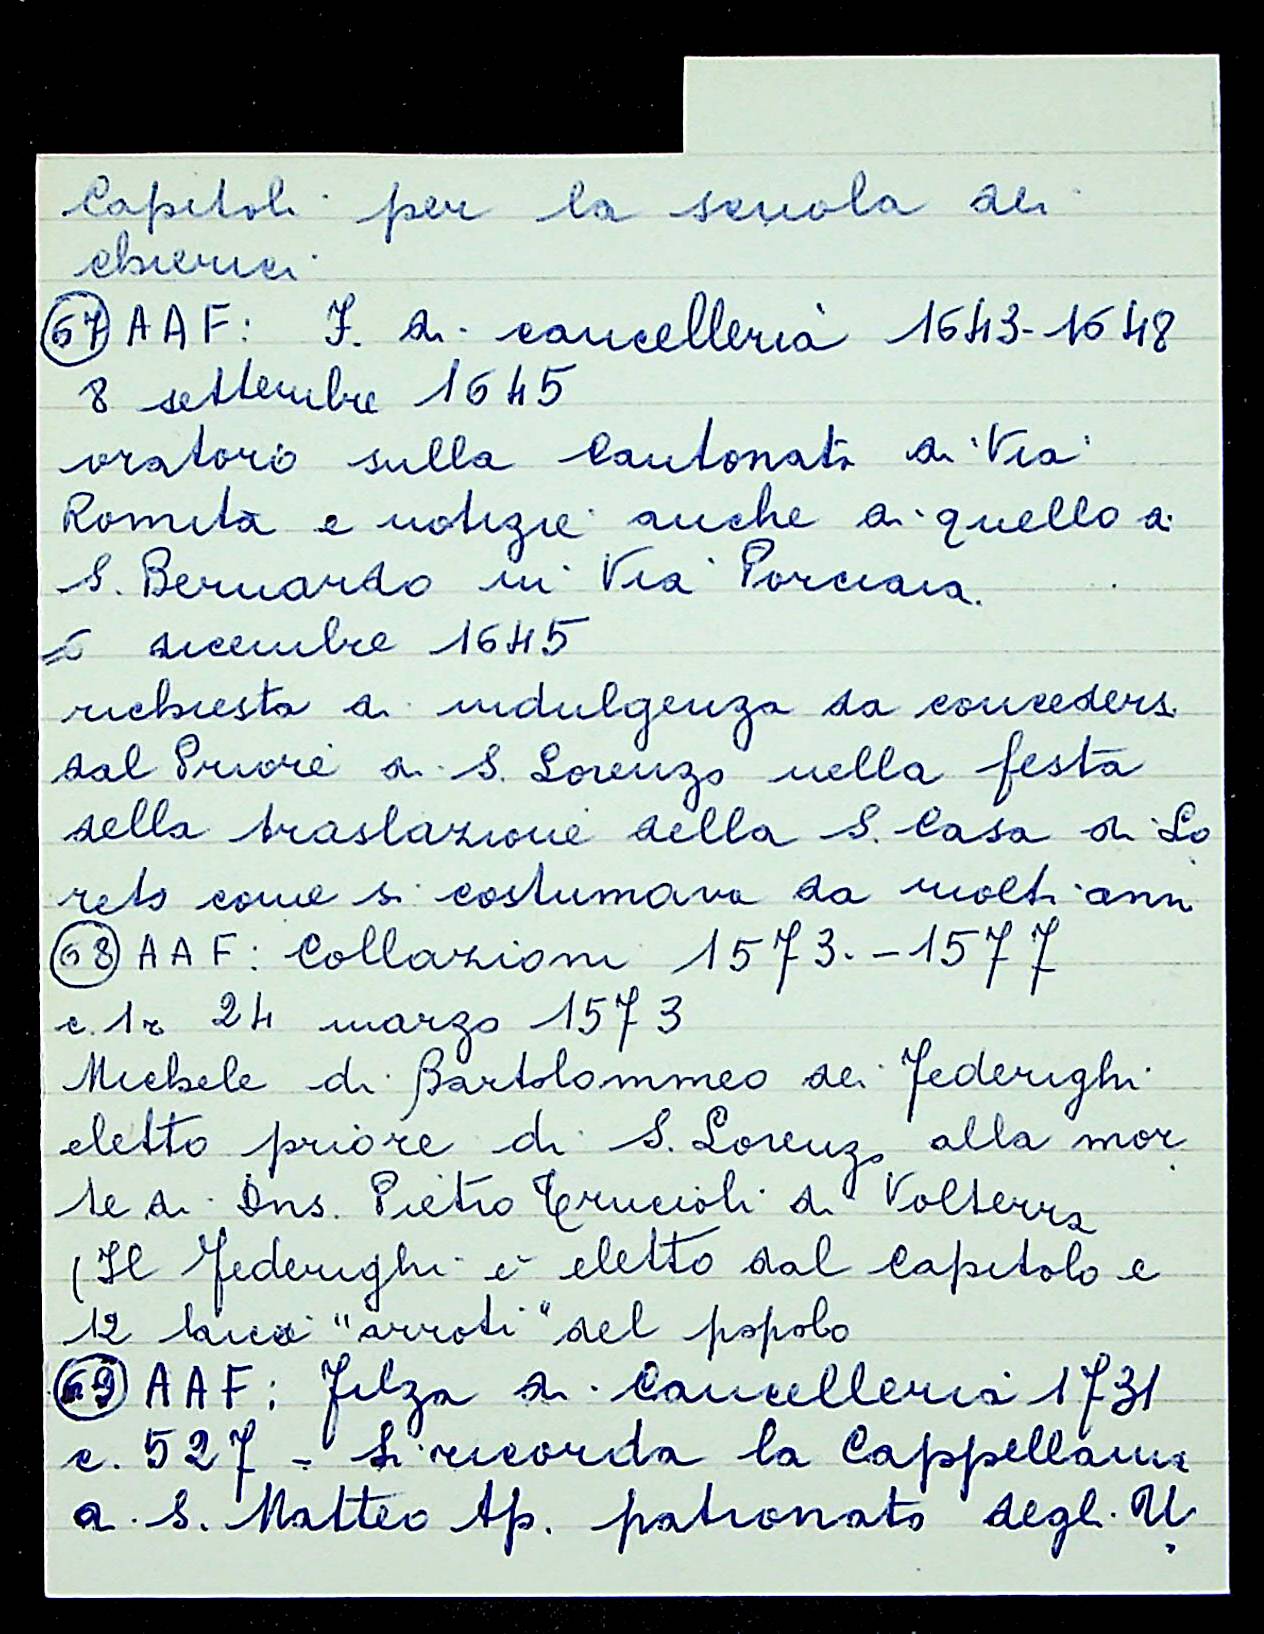 Capitoli per la scuola dei
chierici
67 AAF: F. di cancelleria 1643-1648
8 settembre 1645
oratorio sulla Cantonata di Via
Romita e notizie anche di quello di
S. Bernardo in Via Porciaia.
5 dicembre 1645
richiesta di indulgenza da concedersi
dal Priore di S. Lorenzo nella festa
della traslazione della S. Casa di Lo
reto come si costumava da molti anni
68 AAF: Collazioni 1573.-1577
c. 1r 24 marzo 1573
Michele di Bartolommeo dei Federighi
eletto priore di S. Lorenzo alla mor
te di Dns. Pietro Trucioli di Volterra
(Il Federighi è eletto dal Capitolo e
12 laici "arroti" del popolo
69 AAF: Filza di Cancelleria 1731
c. 527 - Si ricorda la Cappellania
a S. Matteo Ap. patronato degli U